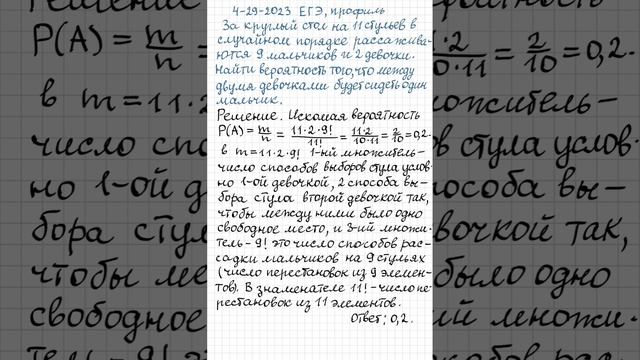 4-29-2023 ЕГЭ, профиль
За круглый стол на 11 стульев в
случайном порядке рассажива-
ются 9 мальчиков и 2 девочки.
Найти вероятность того, что между
двумя девочками будет сидеть один
мальчик.
Решение. Искомая вероятность
P(A) = m/n = 11·2·9!/11! = 11·2/10·11 = 2/10 = 0,2.
в m = 11·2·9! 1-ый множитель-
число способов выборов стула услов-
но 1-ой девочкой, 2 способа вы-
бора стула второй девочкой так,
чтобы между ними было одно
свободное место, и 3-ий множи-
тель - 9! это число способов рас-
садки мальчиков на 9 стульях
(число перестановок из 9 элемен-
тов). В знаменателе 11! - число пе-
рестановок из 11 элементов.
Ответ: 0,2.